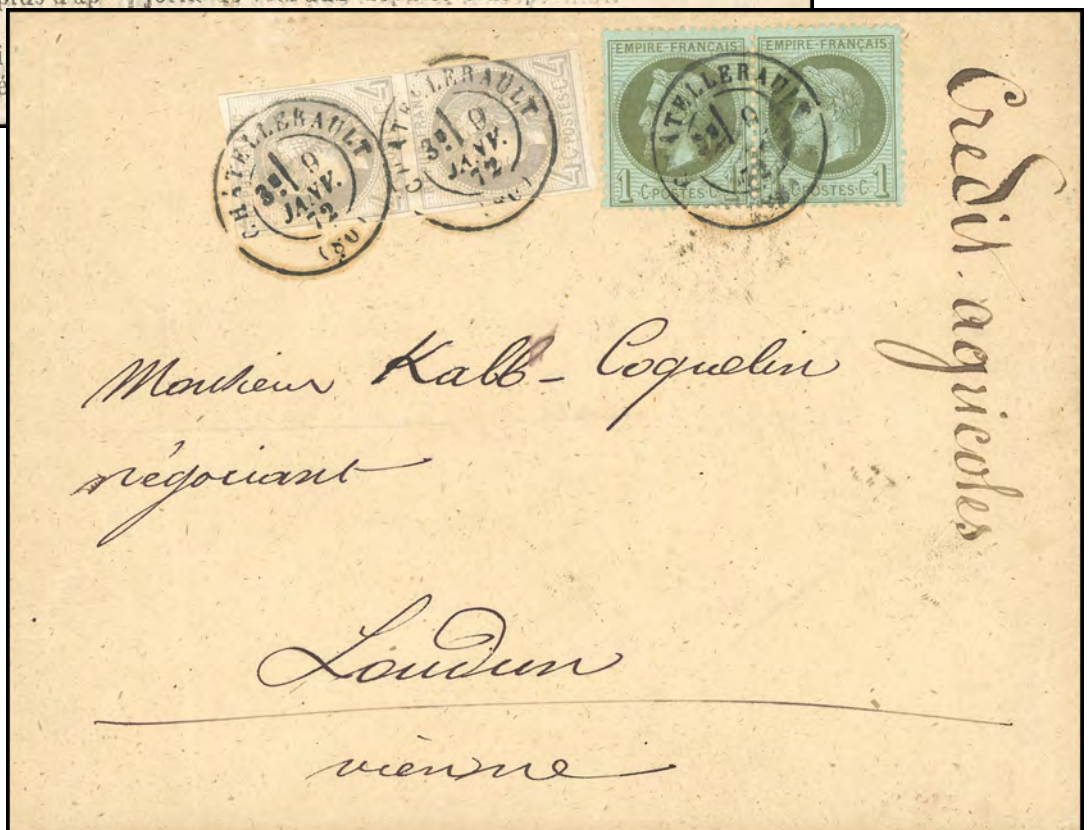 EMPIRE·FRANÇAIS EMPIRE·FRANÇAIS
1 C·POSTES·C· 1
C·POSTES·C· 1
4
4
CHATELLERAULT
3E
9
JANV.
72
(80)
CHATELLERAULT
3E
9
JANV.
72
(80)
CHATELLERAULT
3E
9
Credit agricoles
Monsieur Kalb-Coquelin
négociant
Loudun
vienne